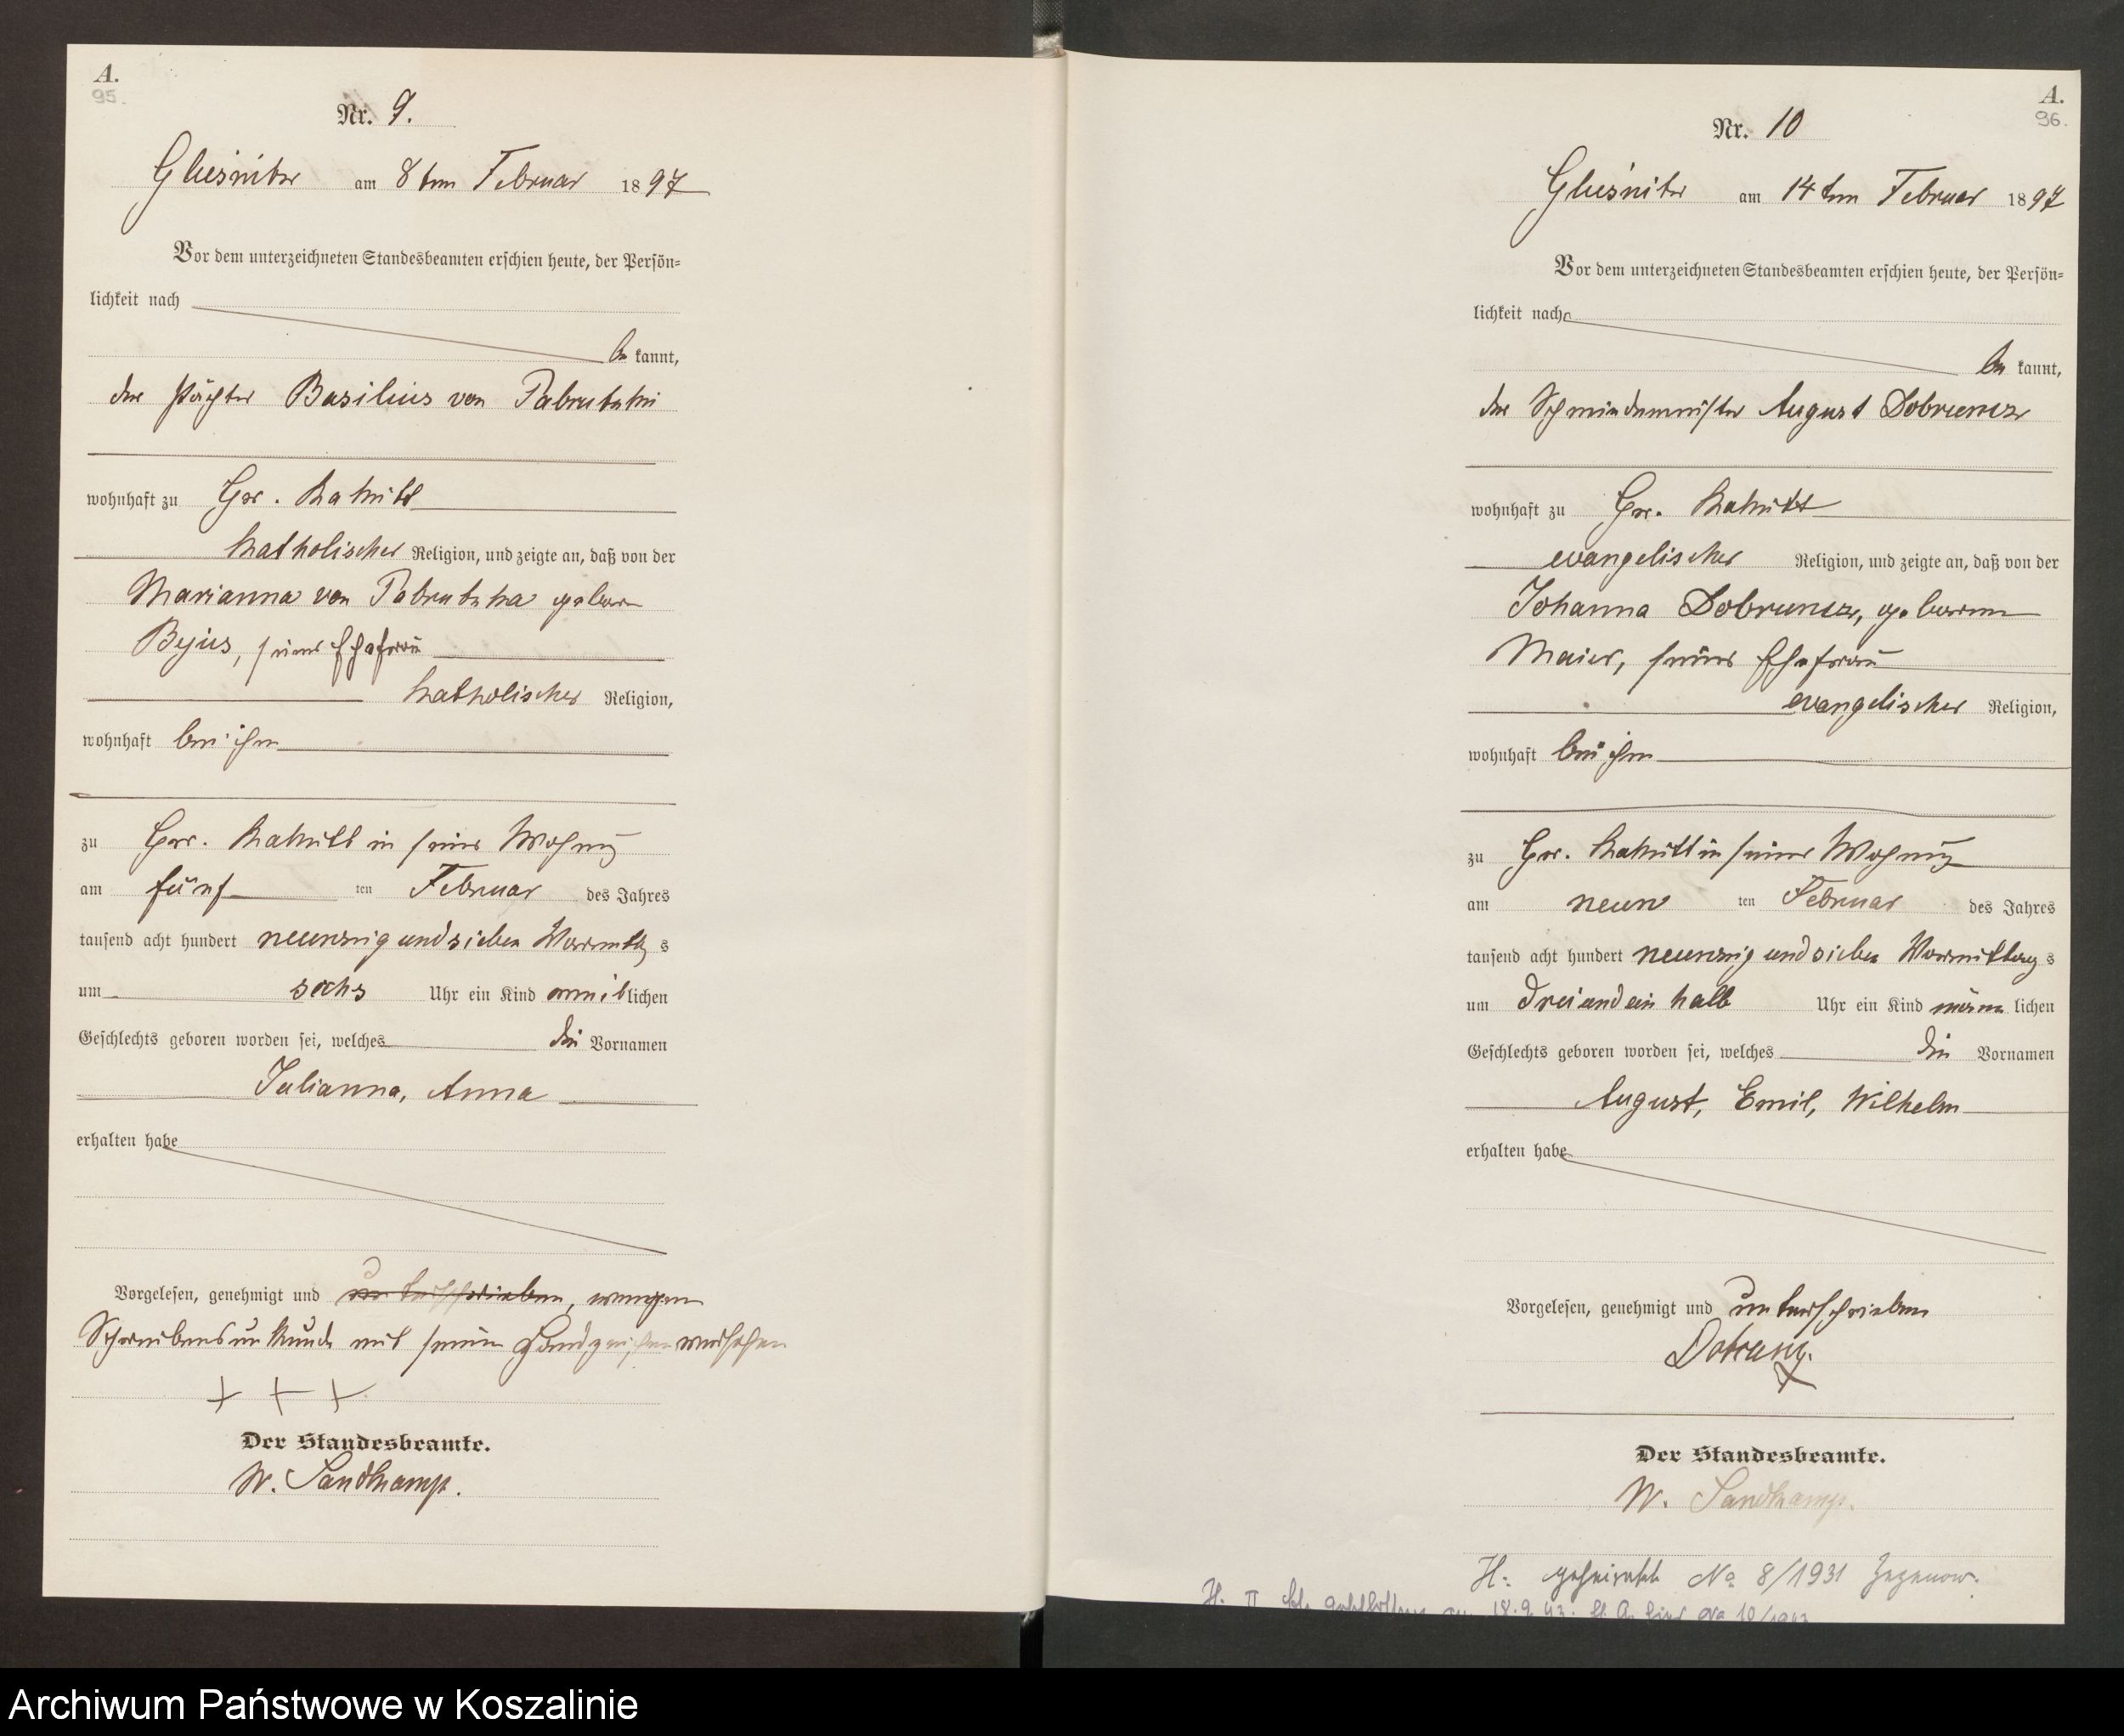 A.
95.
Nr. 9.
Gliesnitz am 8ten Februar 1897
Vor dem unterzeichneten Standesbeamten erschien heute, der Persön=
lichkeit nach
be kannt,
der Pächter Basilius von
wohnhaft zu Gr.
katholischer Religion, und zeigte an, daß von der
Marianna von geboren
seiner Ehefrau
katholischer Religion,
wohnhaft bei ihm
zu Gr. in seiner Wohnung
am fünf ten Februar des Jahres
tausend acht hundert neunzig und sieben Vormittag s
um sechs Uhr ein Kind weib lichen
Geschlechts geboren worden sei, welches die Vornamen
Julianna, Anna
erhalten habe
Vorgelesen, genehmigt und unterschrieben, wegen
Schreibensunkunde mit seinem Handzeichen versehen
+ + +
Der Standesbeamte.
W. Sandkamp.
A.
96.
Nr. 10
Gliesnitz am 14ten Februar 1897
Vor dem unterzeichneten Standesbeamten erschien heute, der Persön=
lichkeit nach
be kannt,
der Schmiedemeister August
wohnhaft zu Gr.
evangelischer Religion, und zeigte an, daß von der
Johanna geborenen
Maier, seiner Ehefrau
evangelischer Religion,
wohnhaft bei ihm
zu Gr. in seiner Wohnung
am neun ten Februar des Jahres
tausend acht hundert neunzig und sieben Vormittag s
um drei und ein halb Uhr ein Kind männ lichen
Geschlechts geboren worden sei, welches die Vornamen
August, Emil, Wilhelm
erhalten habe
Vorgelesen, genehmigt und unterschrieben
Der Standesbeamte.
W. Sandkamp.
H: geheiratet No 8/1931 Zezenow.
H. II
Archiwum Państwowe w Koszalinie